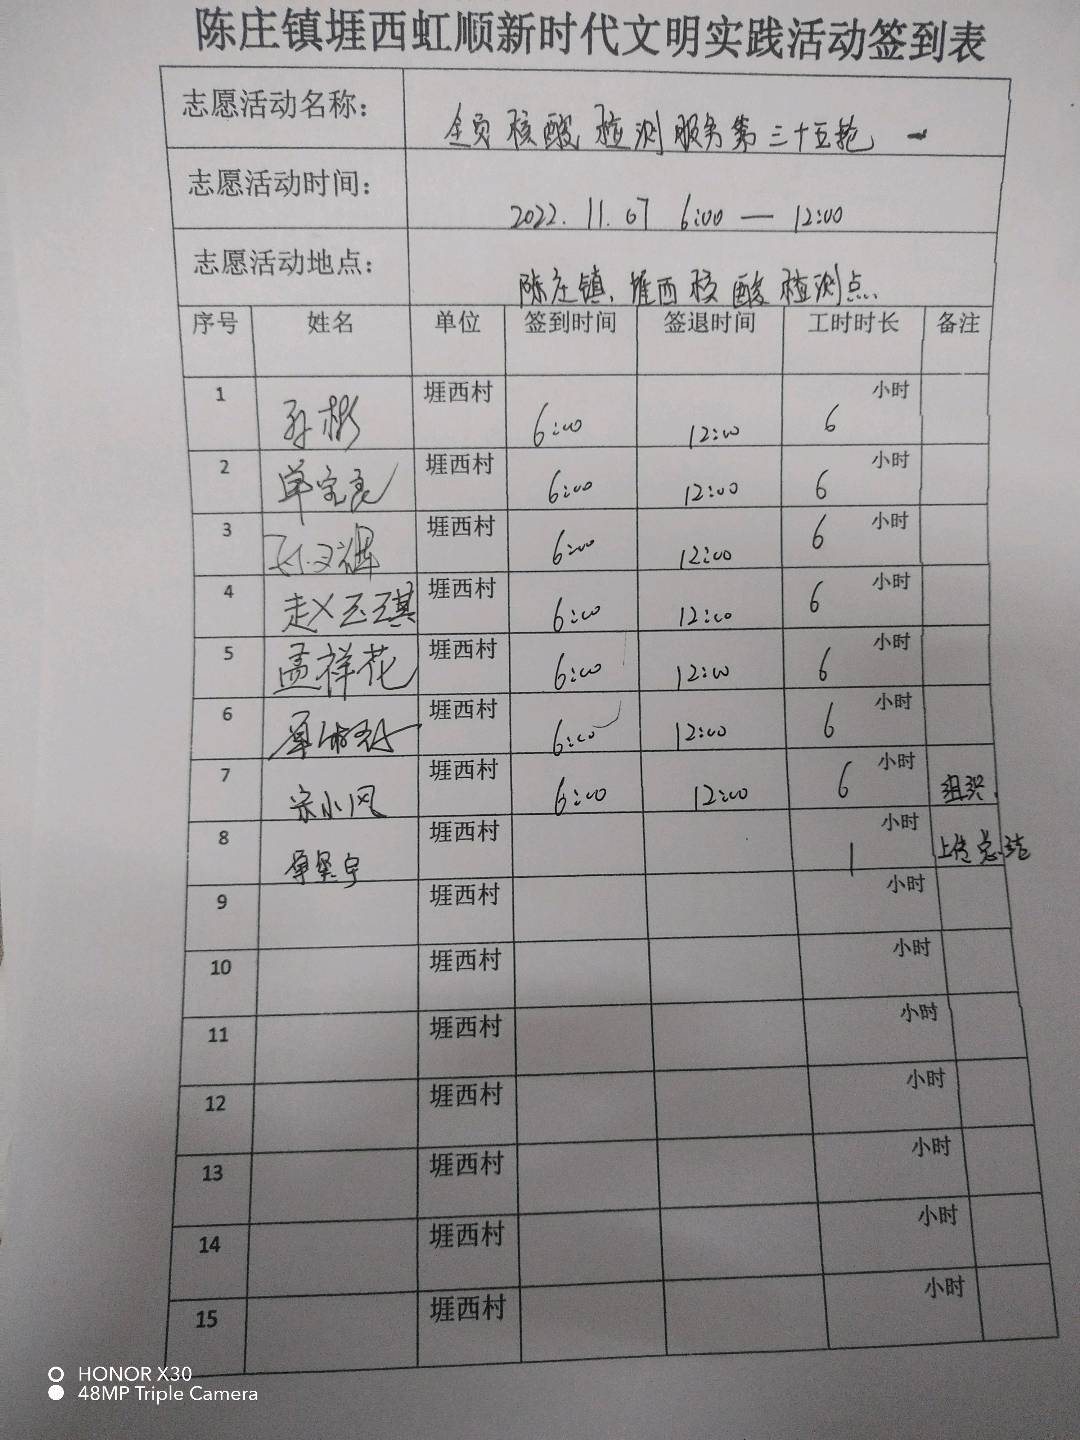 陈庄镇堐西虹顺新时代文明实践活动签到表
志愿活动名称： 全员核酸检测服务第三十五轮
志愿活动时间： 2022.11.07 6:00 — 12:00
志愿活动地点： 陈庄镇、堐西核酸检测点
序号 姓名 单位 签到时间 签退时间 工时时长 备注
1 孙彬 堐西村 6:00 12:00 6 小时
2 单宝亮 堐西村 6:00 12:00 6 小时
3 堐西村 6:00 12:00 6 小时
4 赵玉琪 堐西村 6:00 12:00 6 小时
5 孟祥花 堐西村 6:00 12:00 6 小时
6 堐西村 6:00 12:00 6 小时
7 宋小风 堐西村 6:00 12:00 6 小时 组织
8 单坚宇 堐西村 1 小时 上传总结
9 堐西村 小时
10 堐西村 小时
11 堐西村 小时
12 堐西村 小时
13 堐西村 小时
14 堐西村 小时
15 堐西村 小时
HONOR X30
48MP Triple Camera